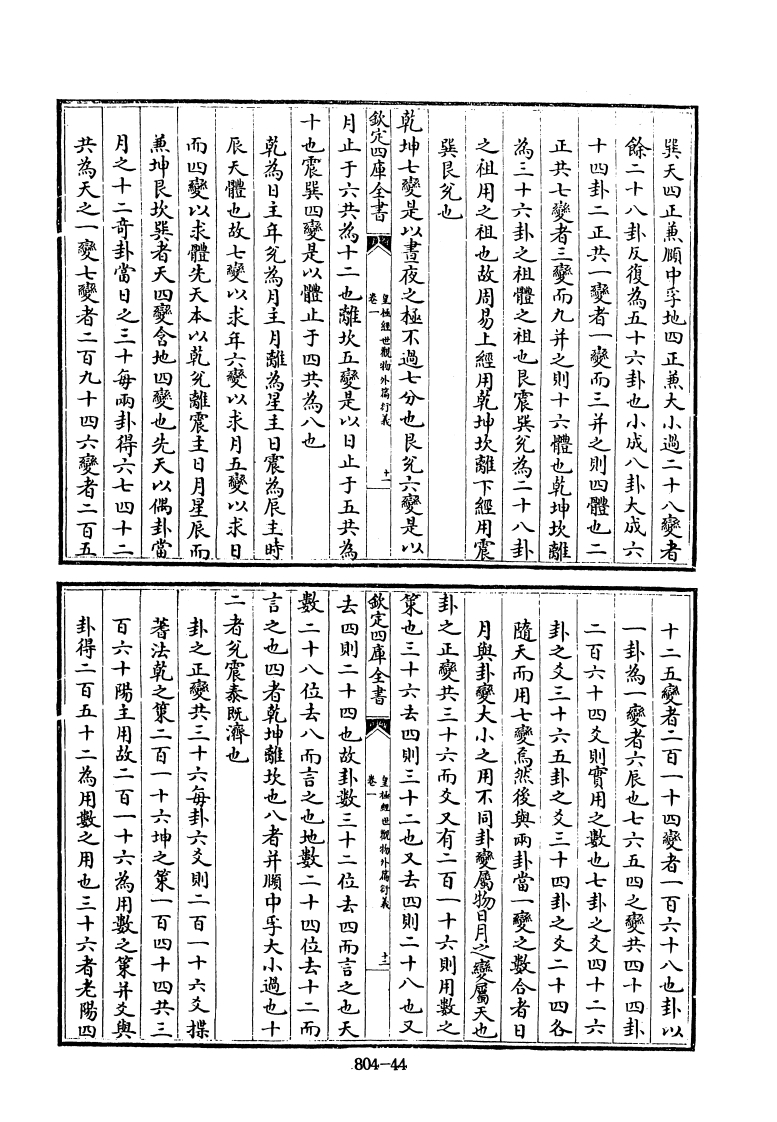 巽天四正兼頤中孚地四正兼大小過二十八變者
餘二十八卦反復為五十六卦也小成八卦大成六
十四卦二正共一變者一變而三并之則四體也二
正共七變者三變而九并之則十六體也乾坤坎離
為三十六卦之祖體之祖也艮震巽兌為二十八卦
之祖用之祖也故周易上經用乾坤坎離下經用震
巽艮兌也
乾坤七變是以晝夜之極不過七分也艮兌六變是以
欽定四庫全書
皇極經世觀物外篇衍義
卷一
十一
月止于六共為十二也離坎五變是以日止于五共為
十也震巽四變是以體止于四共為八也
乾為日主年兌為月主月離為星主日震為辰主時
辰天體也故七變以求年六變以求月五變以求日
而四變以求體先天本以乾兌離震主日月星辰而
兼坤艮坎巽者天四變含地四變也先天以偶卦當
月之十二奇卦當日之三十每兩卦得六七四十二
共為天之一變七變者二百九十四六變者二百五
十二五變者二百一十四變者一百六十八也卦以
一卦為一變者六辰也七六五四之變共四十四卦
二百六十四爻則實用之數也七卦之爻四十二六
卦之爻三十六五卦之爻三十四卦之爻二十四各
隨天而用七變焉然後與兩卦當一變之數合者日
月與卦變大小之用不同卦變屬物日月之變屬天也
卦之正變共三十六而爻又有二百一十六則用數之
策也三十六去四則三十二也又去四則二十八也又
欽定四庫全書
皇極經世觀物外篇衍義
卷一
十二
去四則二十四也故卦數三十二位去四而言之也天
數二十八位去八而言之也地數二十四位去十二而
言之也四者乾坤離坎也八者并頤中孚大小過也十
二者兌震泰既濟也
卦之正變共三十六每卦六爻則二百一十六爻揲
蓍法乾之策二百一十六坤之策一百四十四共三
百六十陽主用故二百一十六為用數之策并爻與
卦得二百五十二為用數之用也三十六者老陽四
804-44